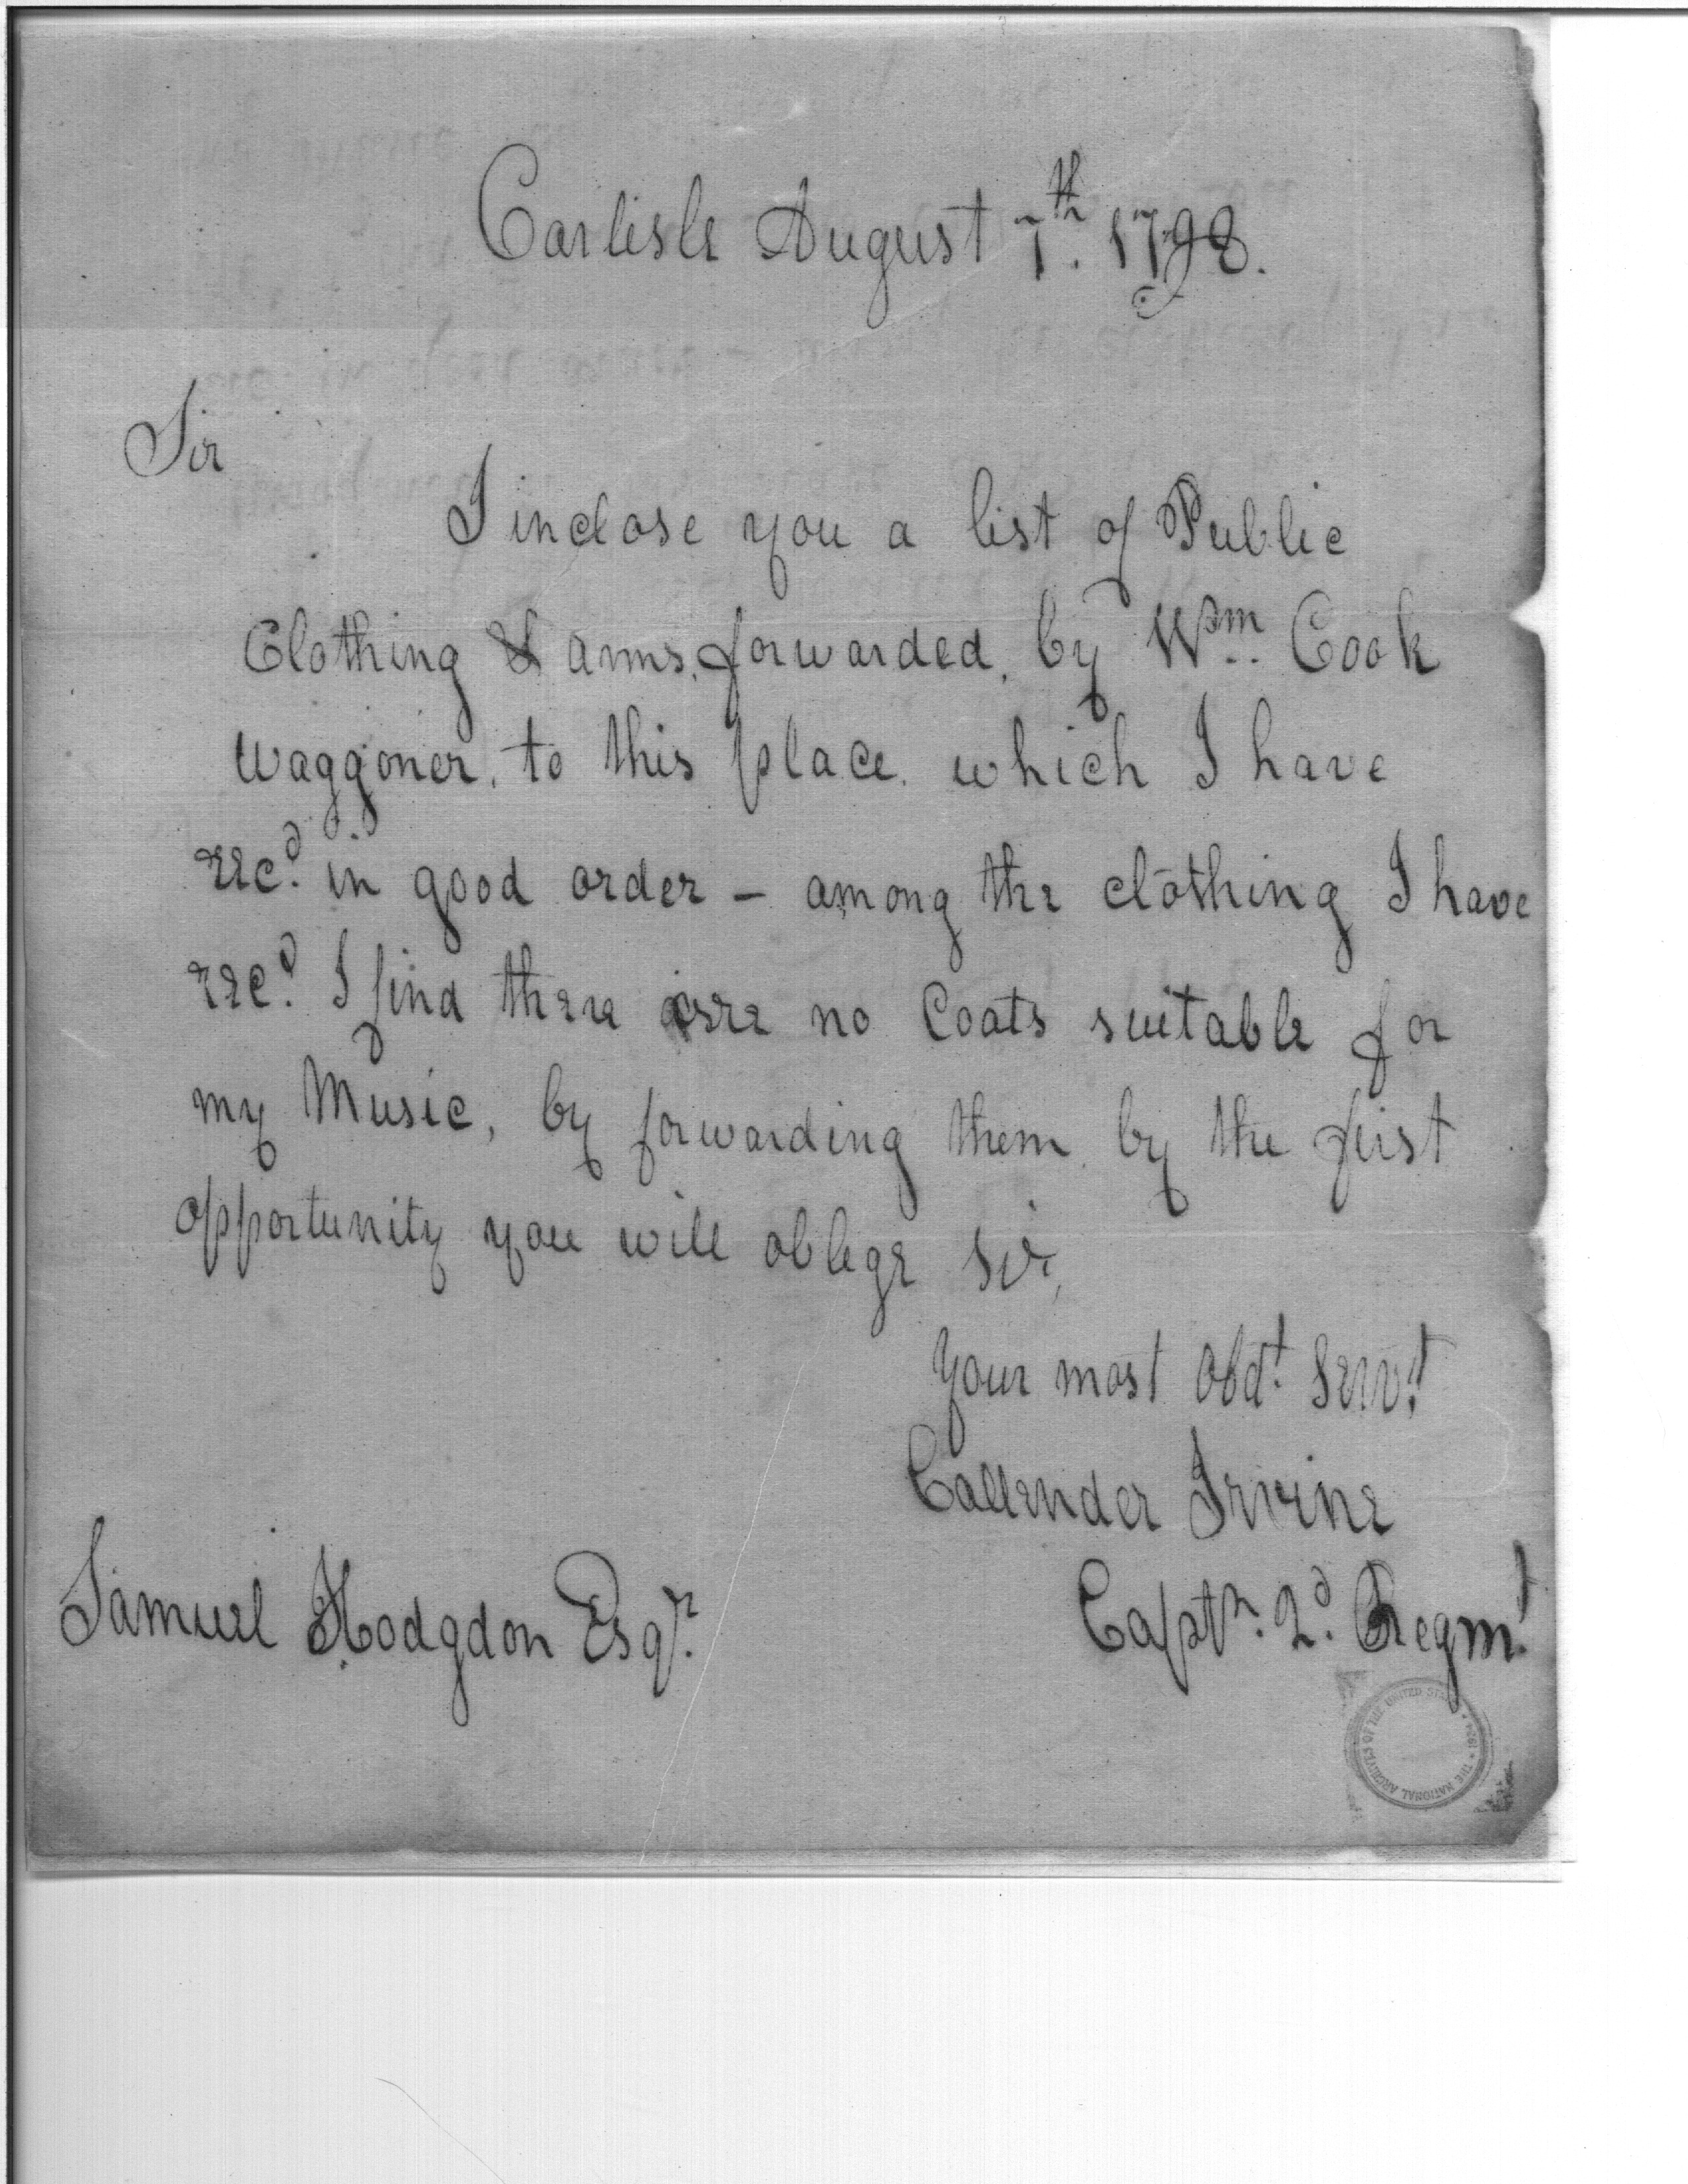 Carlisle August 7th. 1798.
Sir
I inclose you a list of Public
Clothing & arms, forwarded, by Wm.. Cook
Waggoner, to this place. which I have
recd. in good order – among the clothing I have
recd. I find there are no Coats suitable for
my Music, by forwarding them by the first
opportunity you will oblige Sir,
Your most Obdt. Servt.
Callender Irvine
Samuel Hodgdon Esqr.
Captn. 2d. Regmt.
THE NATIONAL ARCHIVES OF THE UNITED STATES • 1934 •